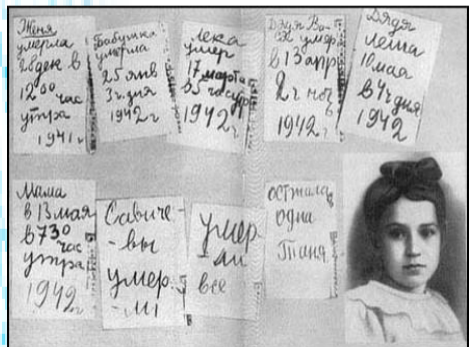 Женя
умерла
28 дек в
12 00 час
утра
1941 г
Бабушка
умерла
25 янв
3 ч. дня
1942 г
Лека
умер
17 марта
в 5 час утр
1942 г
Дядя Ва-
ся умер
в 13 апр
2 ч ноч
в
1942 г
Дядя
Леша
10 мая
в 4 ч дня
1942
Мама
в 13 мая
в 7 30
час
утра
1942 г
Савиче-
-вы
умер
-ли
умер
-ли
все
остала
одна
Таня